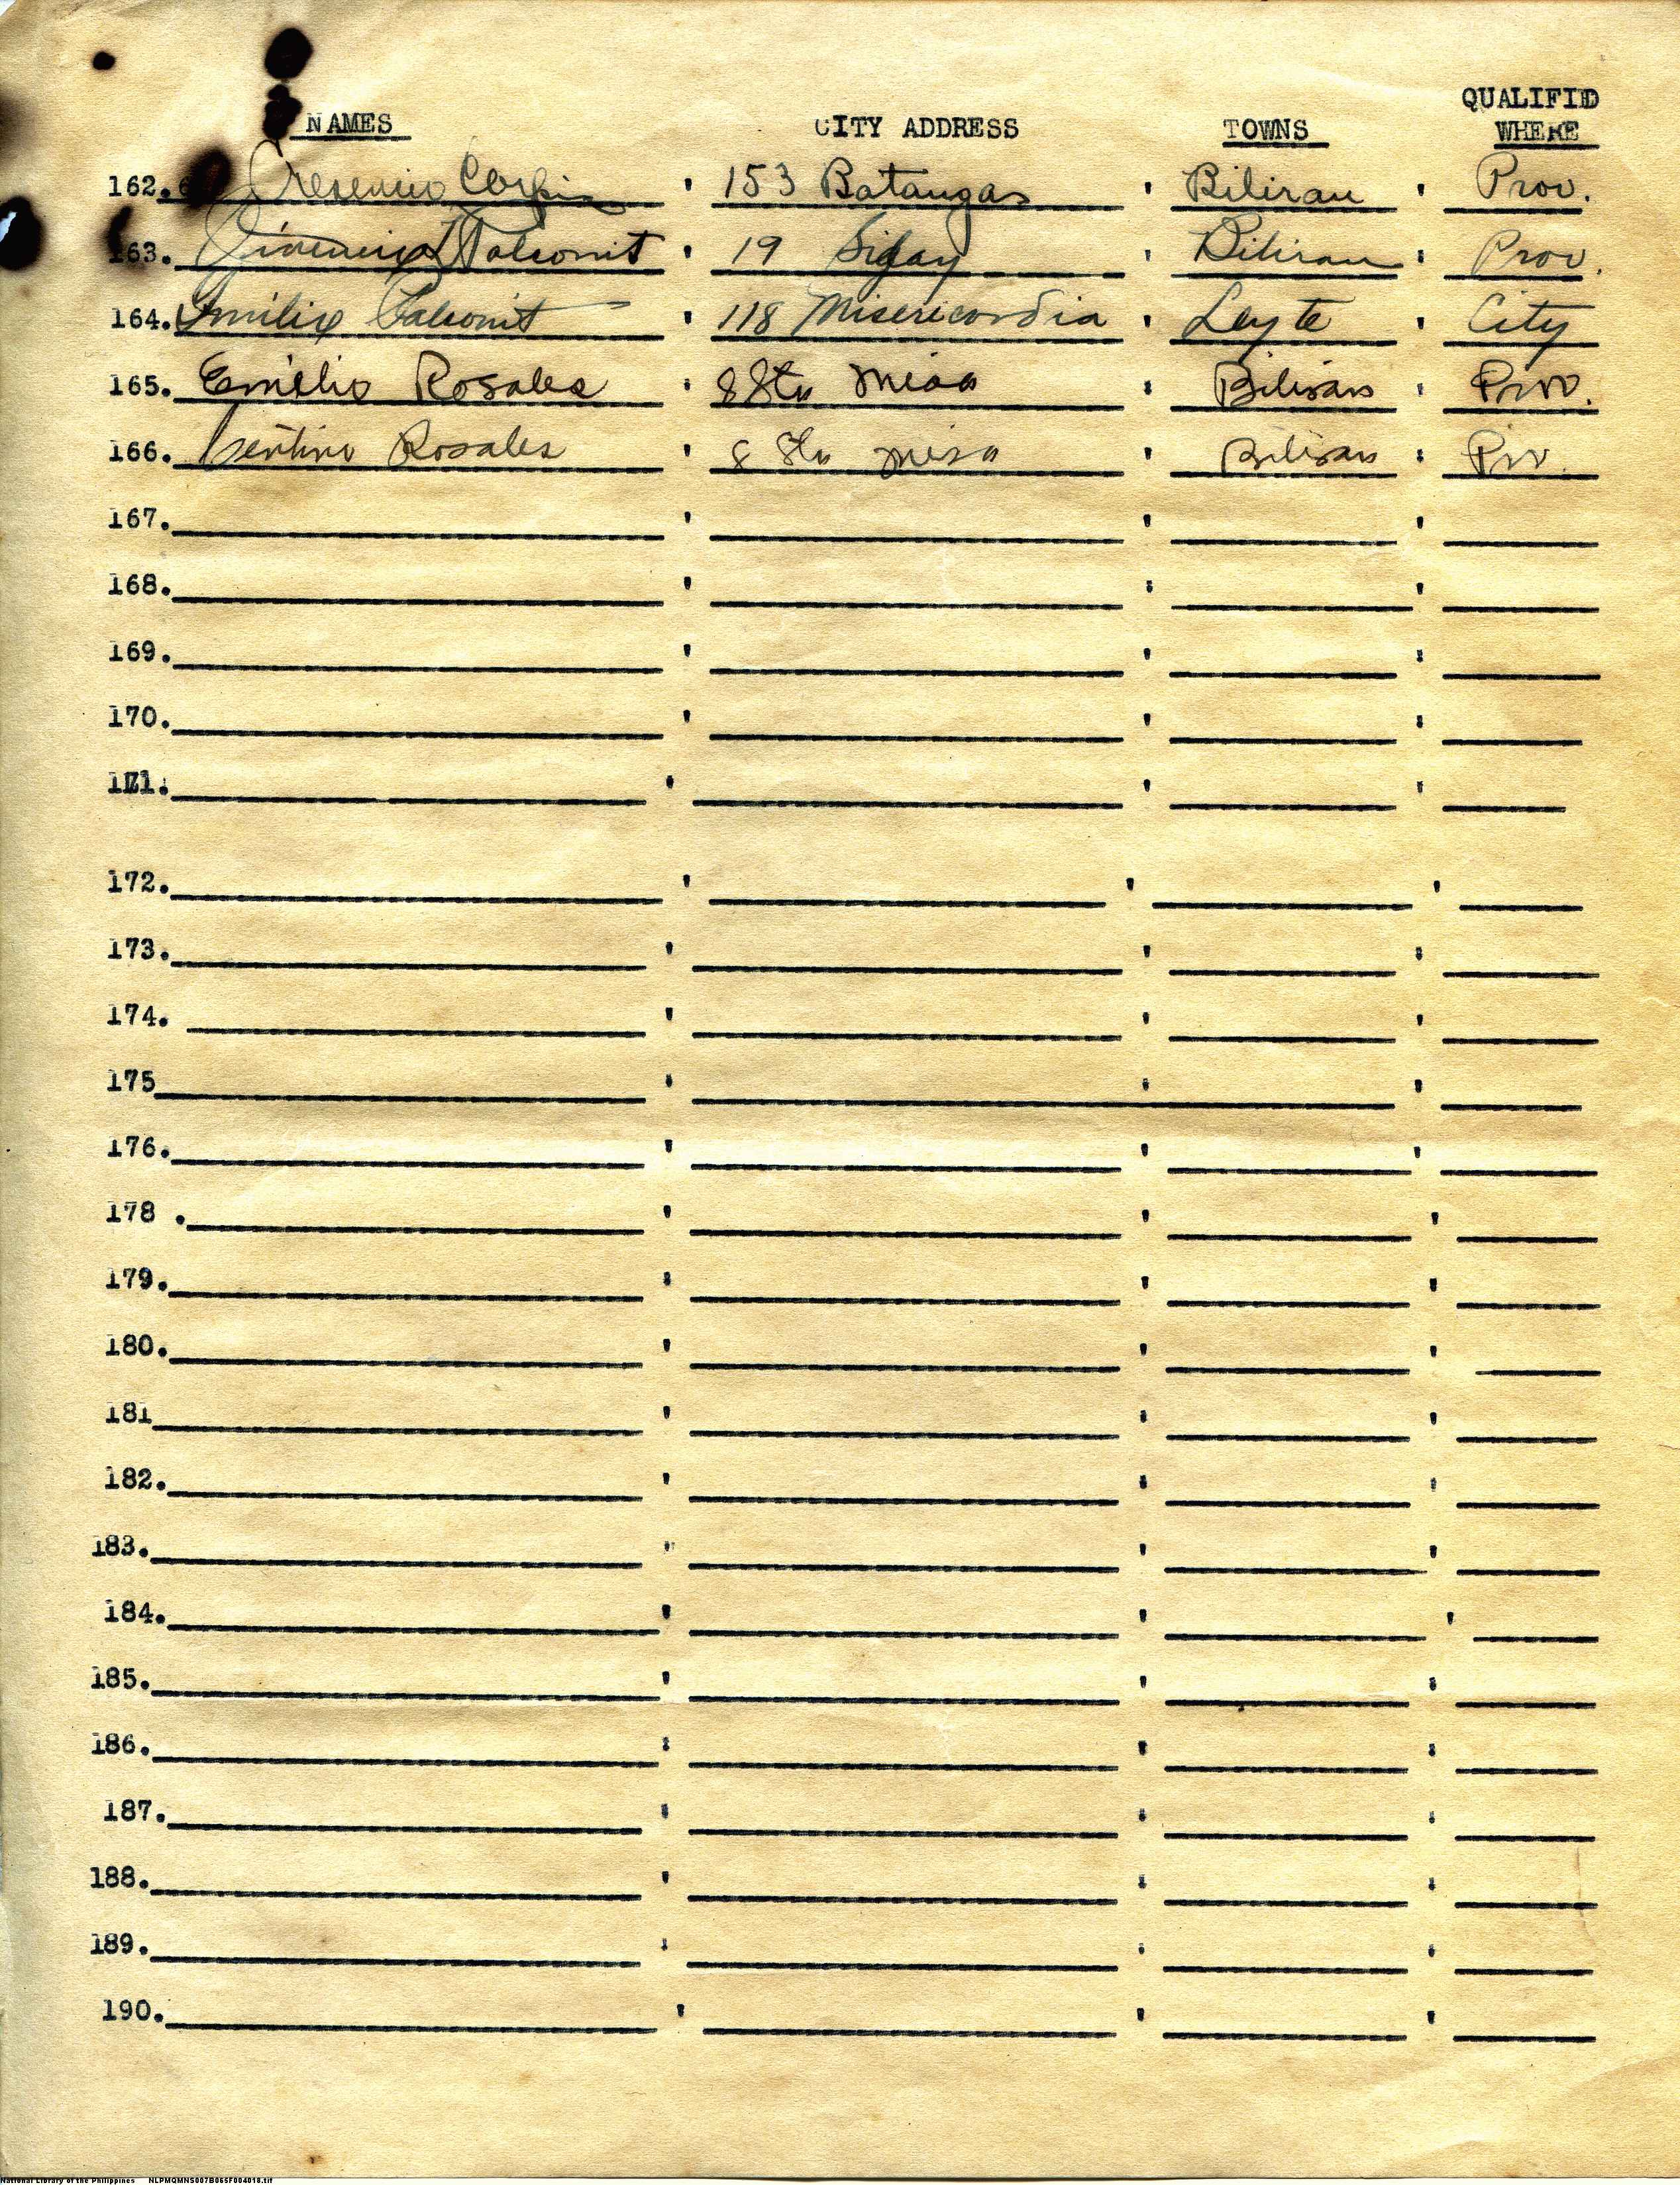 QUALIFID
NAMES CITY ADDRESS TOWNS WHERE
162. 153 Batangas ' Biliran ' Prov.
163. ' 19 ' Biliran ' Prov.
164. Emilio Falconit ' 118 Misericordia ' Leyte ' City
165. Emilio Rosales ' 8 Sta Mesa ' Biliran ' Prov.
166. Rosales ' 8 Sta Mesa ' Biliran ' Prov.
167. ' ' '
168. ' ' '
169. ' ' '
170. ' ' '
171. ' ' '
172. ' ' '
173. ' ' '
174. ' ' '
175 ' ' '
176. ' ' '
178 . ' ' '
179. ' ' '
180. ' ' '
181 ' ' '
182. ' ' '
183. ' ' '
184. ' ' '
185. ' ' '
186. ' ' '
187. ' ' '
188. ' ' '
189. ' ' '
190. ' ' '
National Library of the Philippines NLPMQMNS007B065F004018.tif